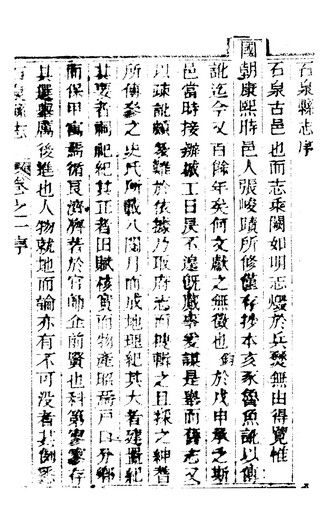 石泉縣志序
石泉古邑也而志乘闕如明志燬於兵燹無由得覽惟
國朝康熙時邑人張峻蹟所修僅存抄本亥豕魯魚訛以傳
訛迄今又百餘年矣何文獻之無徵也 於戊申承乏斯
邑當時接辦城工日昃不遑旣蕆事爰謀是舉而舊志又
以踈訛頗多難於依據乃取府志而搜輯之日採之紳耆
所傳參之史氏所載八閱月而成地理紀其大者建置紀
其要者祠祀紀其正者田賦核實而物產昭焉戶口分鄉
而保甲寓焉循良濟濟若於官師企前賢也科第寥寥存
其選舉厲後進也人物就地而論亦有不可没者其倒悉
石泉縣志 卷之一序